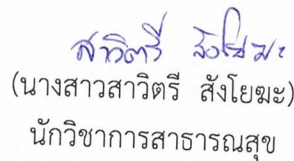 สาวิตรี สังโยฆะ
(นางสาวสาวิตรี สังโยฆะ)
นักวิชาการสาธารณสุข